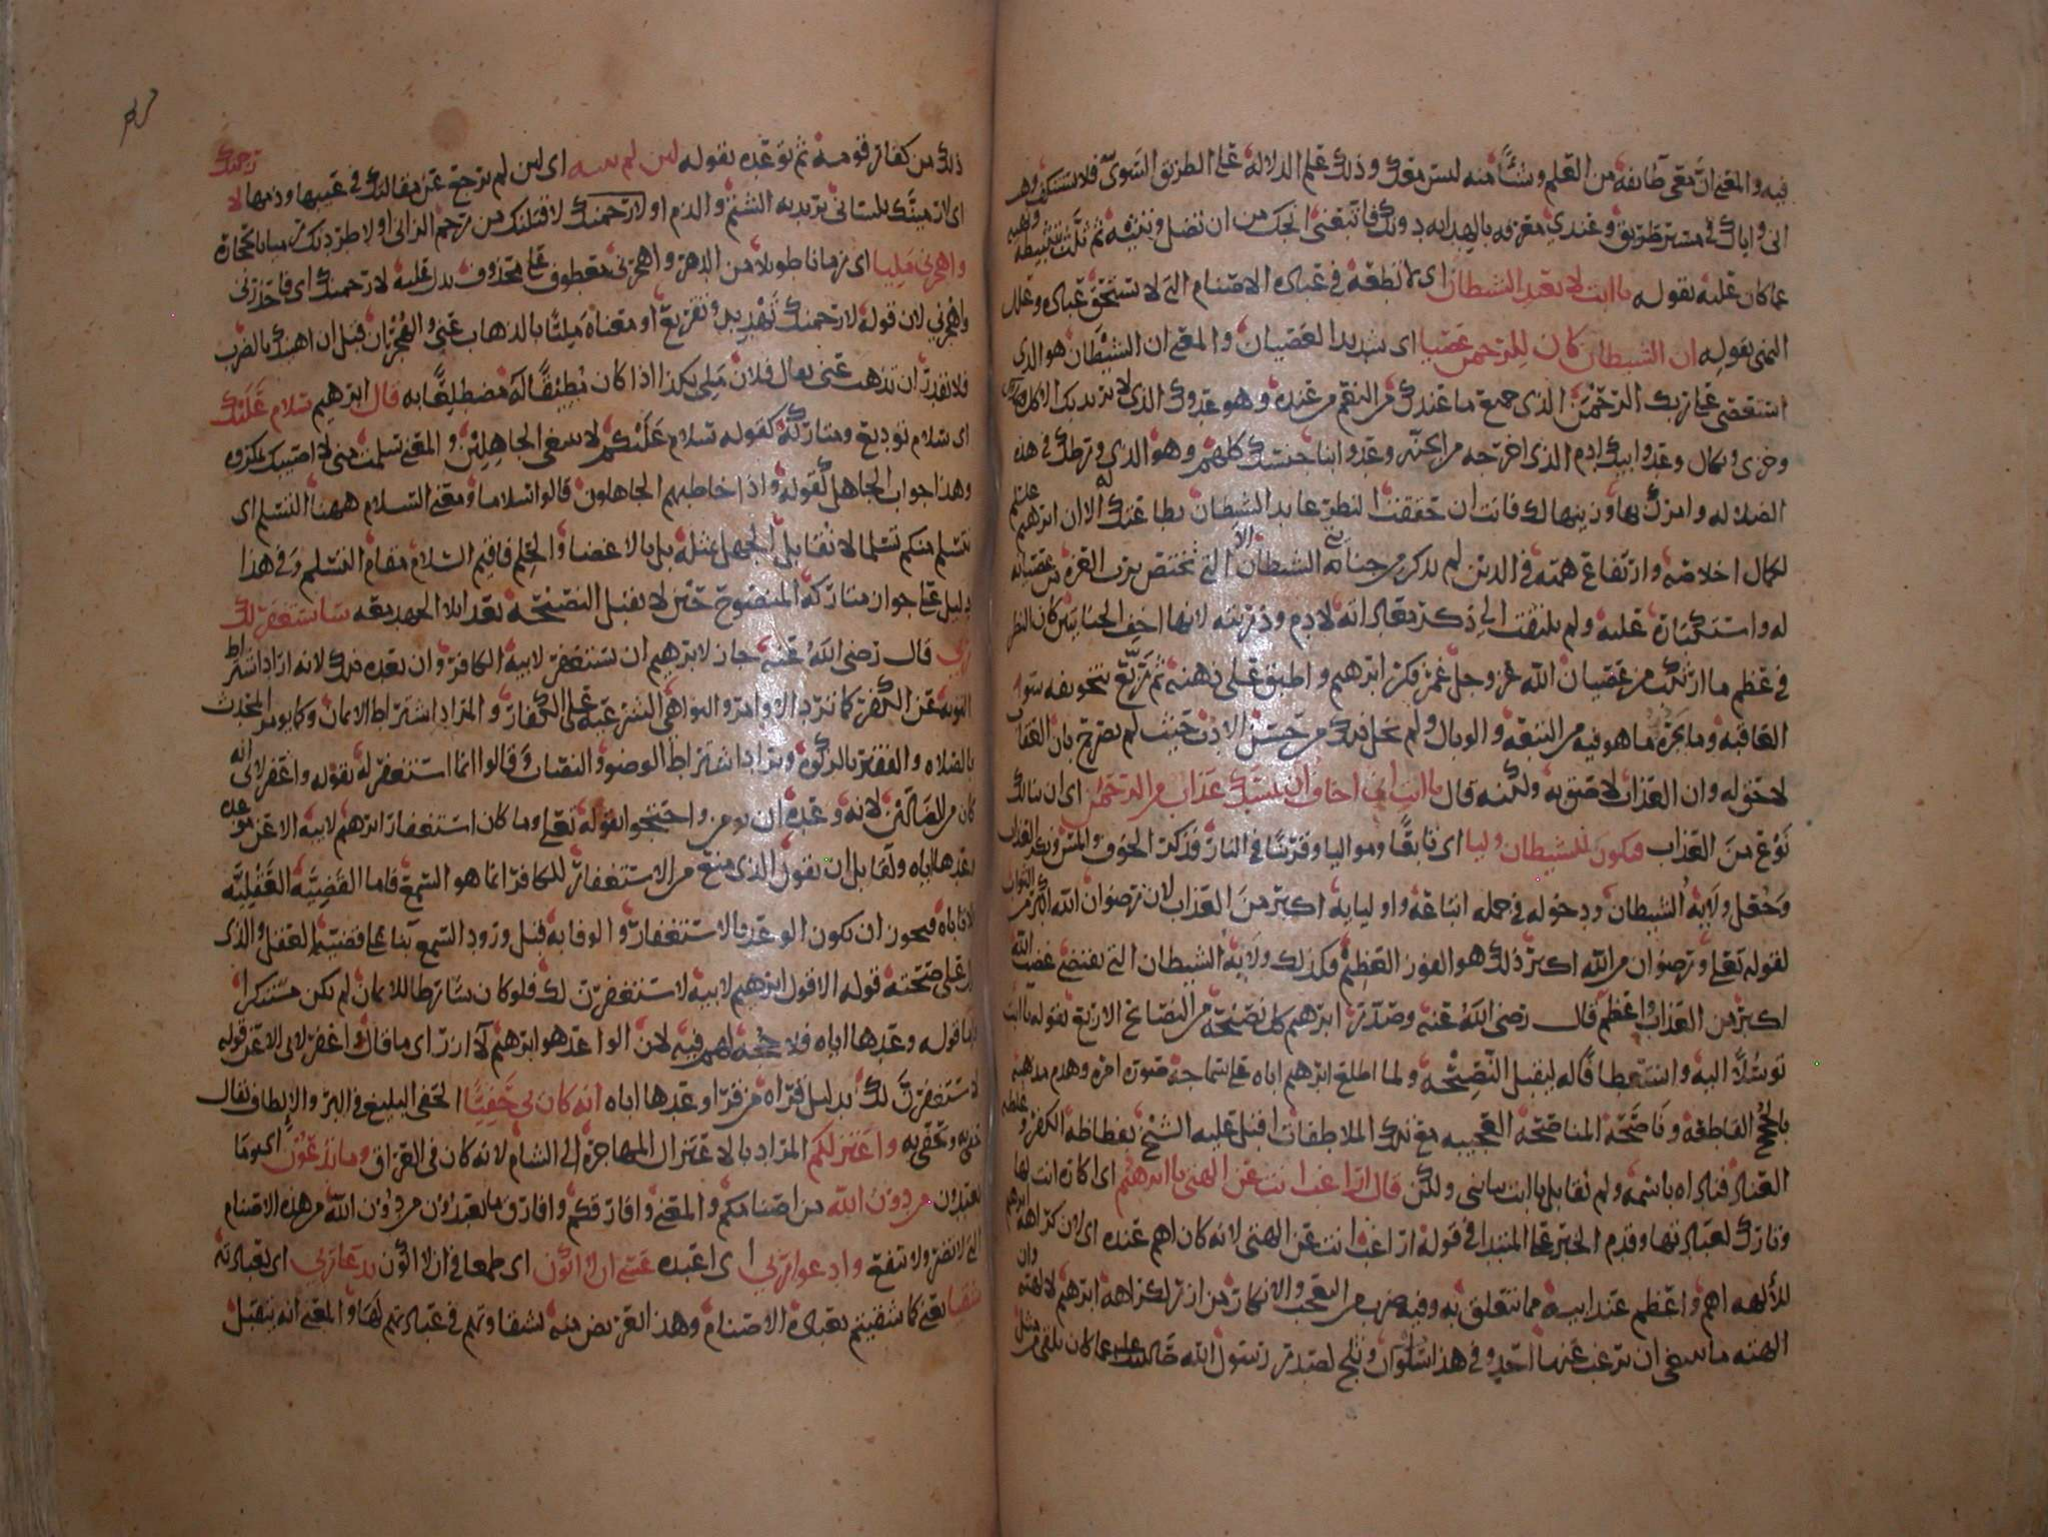 فيه والمعنى ان معي طائفة من العلم وشيئا منه ليس معك وذلك علم الدلالة على الطريق السوي فلا تستنكف وهب
اني واياك في مسير طريق وعندي معرفة بالهداية دونك فاتبعني انجك من ان تضل وتتيه ثم ثلث بتثبيطه ونهيه
عما كان عليه بقوله يا ابت لا تعبد الشيطان اي لا تطعه في عبادة الاصنام التي لا تستحق عبادة وعلل
النهي بقوله ان الشيطان كان للرحمن عصيا اي شديد العصيان والمعنى ان الشيطان هو الذي
استعصى على ربك الرحمن الذي جميع ما عندك من النعم من عنده وهو عدوك الذي لا يريد بك الا كل هلاك
وخزي ونكال وعدو ابيك ادم الذي اخرجه من الجنة وعدو ابنا جنسك كلهم وهو الذي ورطك في هذه
الضلالة وامرك بها وزينها لك فانت ان حققت النظر عابد الشيطان بطاعتك له الا ان ابرهيم عليلم
لكمال اخلاصه وارتفاع همته في الدين لم يذكر من جنايتي الشيطان الا التي تختص برب العزة من عصيانه
له واستكباره عليه ولم يلتفت الى ذكر معاداته لادم وذريته لانها اخف الجنايتين كان النظر
في عظم ما ارتكب من عصيان الله عز وجل غمر فكر ابرهيم واطبق على ذهنه ثم ربع بتخويفه سوء
العاقبة وما يجره ما هو فيه من التبعة والوبال ولم يخل ذلك من حسن الادب حيث لم يصرح بان العقاب
لاحق له وان العذاب لاصق به ولكنه قال يا ابت اني اخاف ان يمسك عذاب من الرحمن اي ان ينالك
نوع من العذاب فتكون للشيطان وليا اي تابعا ومواليا وقرينا في النار فذكر الخوف والمس ونكر العذاب
وجعل ولاية الشيطان ودخوله في جملة اتباعه واوليايه اكبر من العذاب لان رضوان الله اكبر من الثواب
لقوله تعلى ورضوان من الله اكبر ذلك هو الفوز العظيم فكذلك ولاية الشيطان التي تقتضي غضب الله
اكبر من العذاب واعظم قال رضي الله عنه وصدر ابرهيم كل نصيحة من النصائح الاربع بقوله يا ابت
توسلا اليه واستعطافا له ليقبل النصيحة ولما اطلع ابرهيم اباه على سماجة صورة امره وهدم مذهبه
بالحجج القاطعة وناصحه المناصحة العجيبة مع تلك الملاطفات اقبل عليه الشيخ بفظاظة الكفر وغلظة
العناد فناداه باسمه ولم يقابل يا ابت بيا بني ولكن قال اراغب انت عن الهتي يا ابرهيم اي اكاره انت لها
وتارك لعبادتها وقدم الخبر على المبتدا في قوله اراغب انت عن الهتي لانه كان اهم عنده اي لان كراهة ابرهيم
للألهة اهم واعظم عند ابيه مما يتعلق به وفيه ضرب من التعجب والانكار من انه لكراهة ابرهيم لالهته وان
الهته ما ينبغي ان يرغب عنها احد وفي هذا سلوان وثلج لصدر رسول الله صلى الله عليه عما كان يلقى من مثل
ذلك من كفار قومه ثم توعده بقوله لين لم تنته اي لين لم ترجع عن مقالتك في عيبها وذمها لارجمنك
اي لارمينك بلساني يريد به الشتم والذم او لارجمنك لاقتلنك من رجم الزاني او لاطردنك رميا بالحجارة
واهجرني مليا اي زمانا طويلا من الدهر واهجرني معطوف على محذوف يدل عليه لارجمنك اي فاحذرني
واهجرني لان قوله لارجمنك تهديد وتقريع او معناه مليا بالذهاب عني والهجران قبل ان اهينك بالضرب
فلا تقدر ان تذهب عني يقال فلان ملي بكذا اذا كان مطيقا له مضطلعا به قال ابرهيم سلام عليك
اي سلام توديع ومتاركة كقوله سلام عليكم لا نبتغي الجاهلين والمعنى سلمت مني لا اصيبك بمكروه
وهذا جواب الجاهل كقوله واذا خاطبهم الجاهلون قالوا سلاما ومعنى السلام ههنا التسلم اي
نتسلم منكم تسلما لا نقابل الجهل بمثله بل بالاغضا والحلم فاقيم السلام مقام التسلم وفي هذا
دليل على جواز متاركة المنصوح حين لا يقبل النصيحة بعد ابلا الجهد معه ساستغفر لك
ربي قال رضي الله عنه جاز لابرهيم ان يستغفر لابيه الكافر وان يعده ذلك لانه اراد اشتراط
التوبة عن الكفر كما ترد الاوامر والنواهي الشرعية على الكفار والمراد اشتراط الايمان وكما يومر المحدث
بالصلاه والفقير بالزكوة ويراد اشتراط الوضو والنصاب وقالوا انما استغفر له بقوله واغفر لابي انه
كان من الضالين لانه وعده ان يومن واحتجوا بقوله تعلى وما كان استغفار ابرهيم لابيه الا عن موعدة
وعدها اياه ولقايل ان يقول الذي منع من الاستغفار للكافر انما هو السمع فاما القضية العقلية
لا تاباه فيجوز ان يكون الوعد بالاستغفار والوفا به قبل ورود السمع بنا على قضية العقل والذي
يدل على صحته قوله الا قول ابرهيم لابيه لاستغفرن لك فلو كان شارطا للايمان لم يكن مستنكرا
واما قوله وعدها اياه فلا حجة لهم فيه لان الواعد هو ابرهيم لا ازر اي ما قال واغفر لابي الا عن قوله
لاستغفرن لك بدليل قراه من قرا وعدها اباه انه كان بي حفيا الحفي البليغ في البر والالطاف يقال
حفي به وتحفى به واعتزلكم المراد بالاعتزال المهاجرة الى الشام لانه كان في العراق وما تدعون اي وما
تعبدون من دون الله من اصنامكم والمعنى وافارقكم وافارق ما تعبدون من دون الله من هذه الاصنام
التي لا تضر ولا تنفع وادعوا ربي اي اعبده عسى ان لا اكون اي طمعا في ان لا اكون بدعا ربي اي بعبادته
شقيا يعني كما شقيتم بعبادة الاصنام وهذا تعريض منه لشقاوتهم في عبادتهم لها والمعنى انه يتقبل